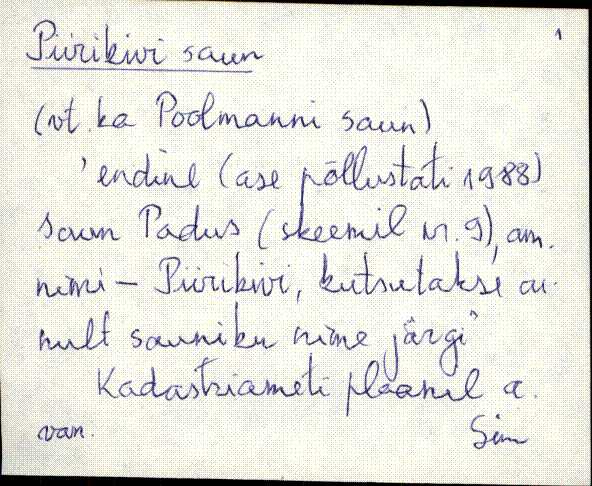 Piirikivi saun 1
(vt. ka Poolmanni saun)
'endine (ase põllustati 1988)
saun Padus (skeemil nr. 9), am.
nimi - Piirikivi, kutsutakse ai-
nult sauniku nime järgi'
Kadastriameti plaanil
van.